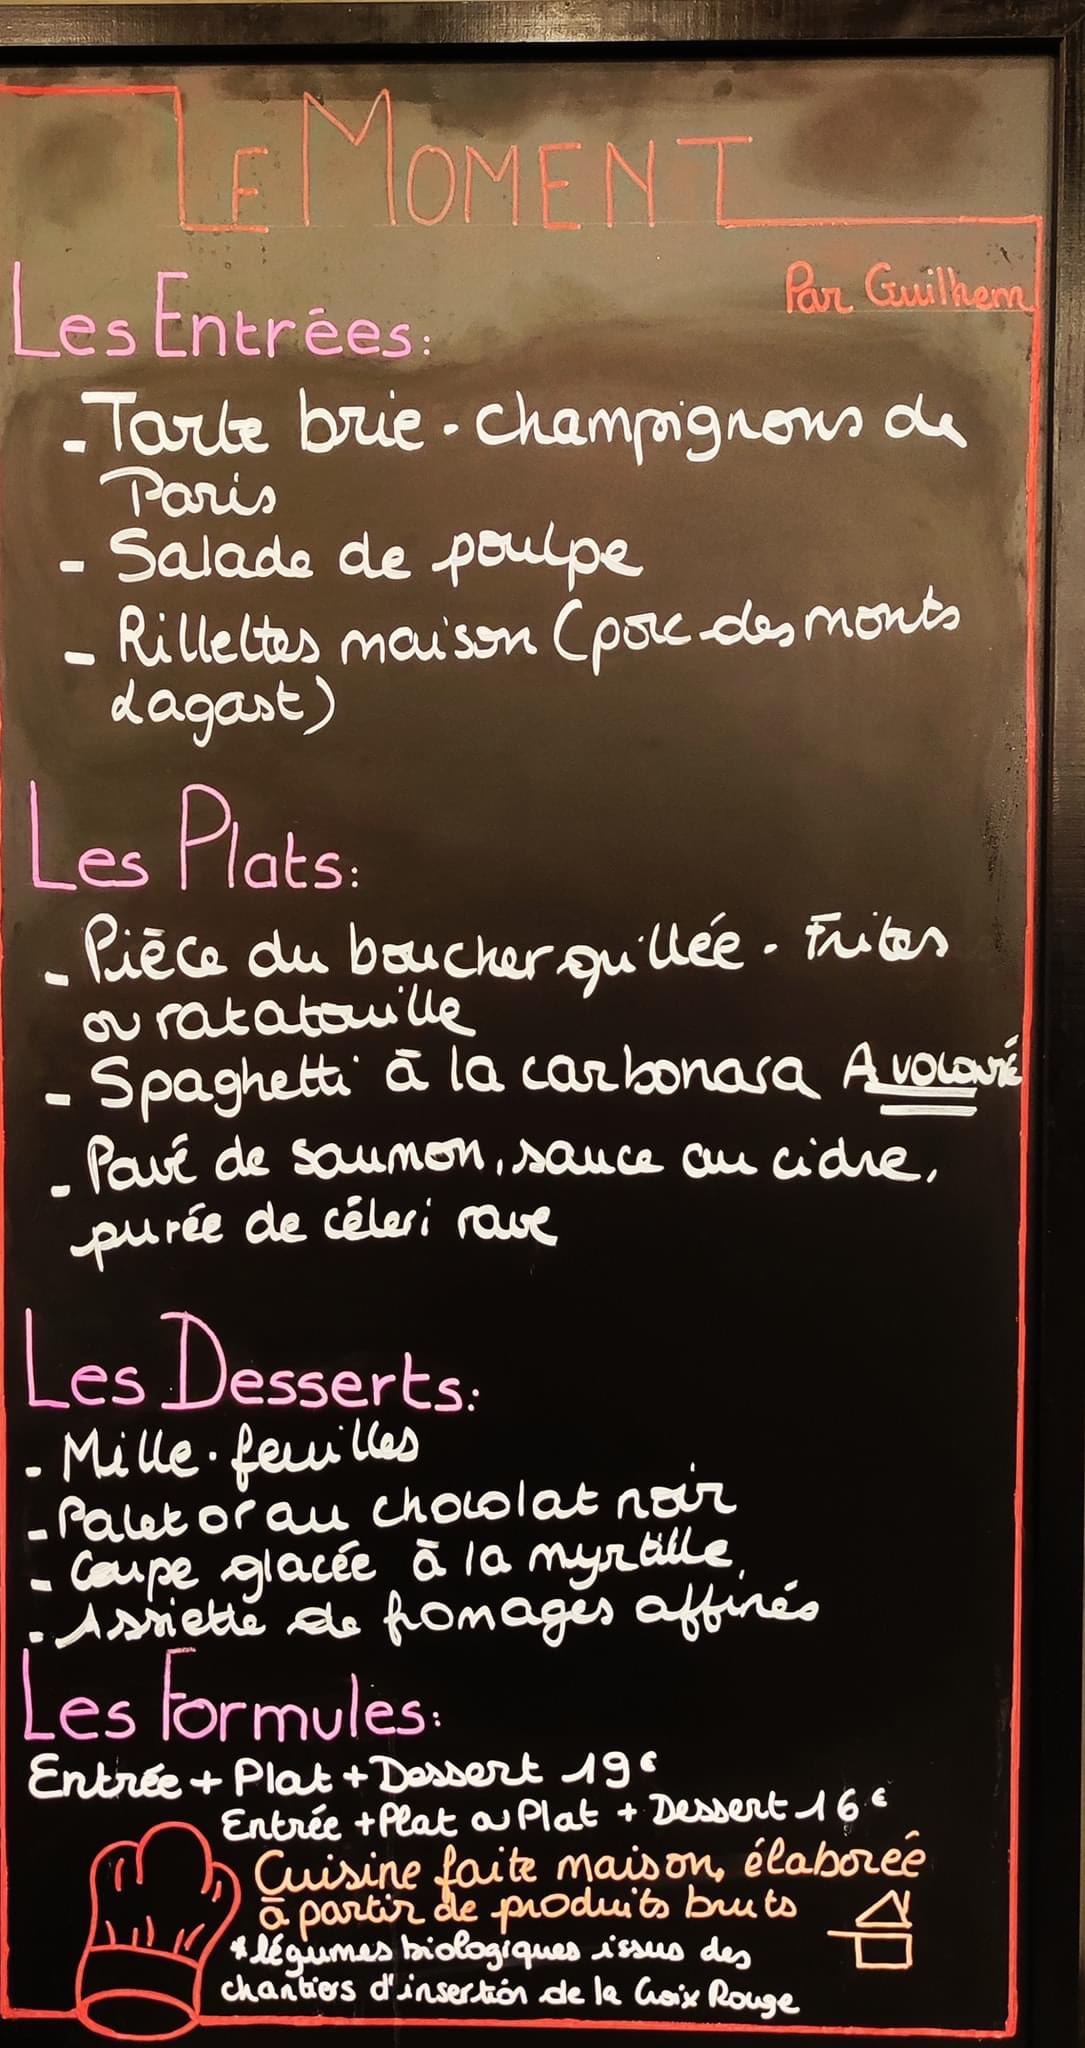 LE MOMENT
Par Guilhem
Les Entrées:
- Tarte brie - champignons de
Paris
- Salade de poulpe
- Rillettes maison (porc des monts
Lagast)
Les Plats:
- Pièce du boucher grillée - Frites
ou ratatouille
- Spaghetti à la carbonara A VOLONTÉ
- Pavé de saumon, sauce au cidre,
purée de céleri rave
Les Desserts:
- Mille-feuilles
- Palet or au chocolat noir
- Coupe glacée à la myrtille
- Assiette de fromages affinés
Les Formules:
Entrée + Plat + Dessert 19€
Entrée + Plat ou Plat + Dessert 16€
Cuisine faite maison, élaborée
à partir de produits bruts
* légumes biologiques issus des
chantiers d'insertion de la Croix Rouge